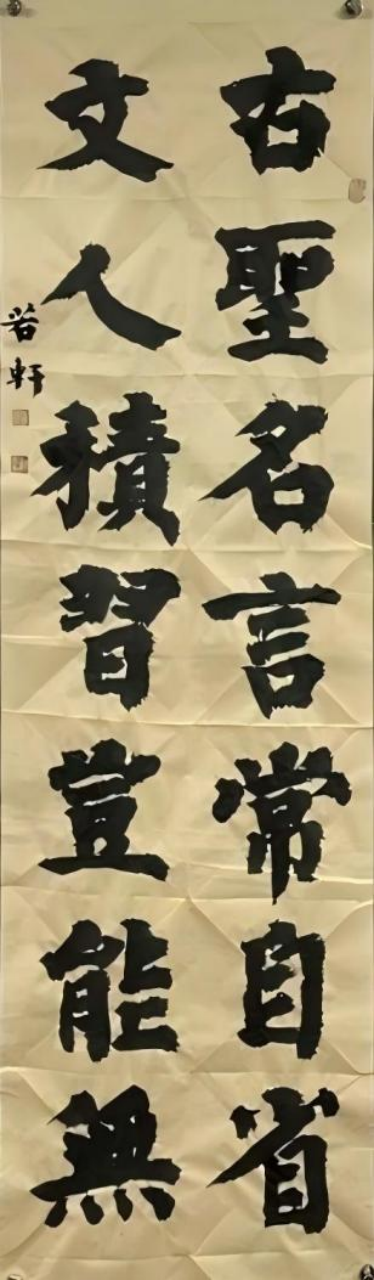 右聖名言常自省
文人積習豈能無
若軒